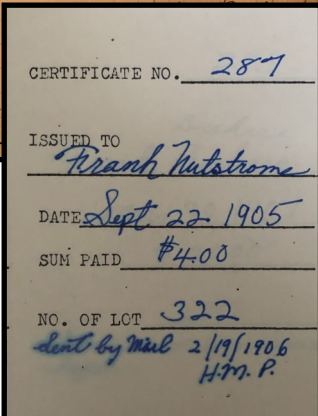 CERTIFICATE NO. 287
ISSUED TO
Frank Nutstrome
DATE Sept 22 1905
SUM PAID $4.00
NO. OF LOT 322
Sent by Mail 2/19/1906
H.M. P.